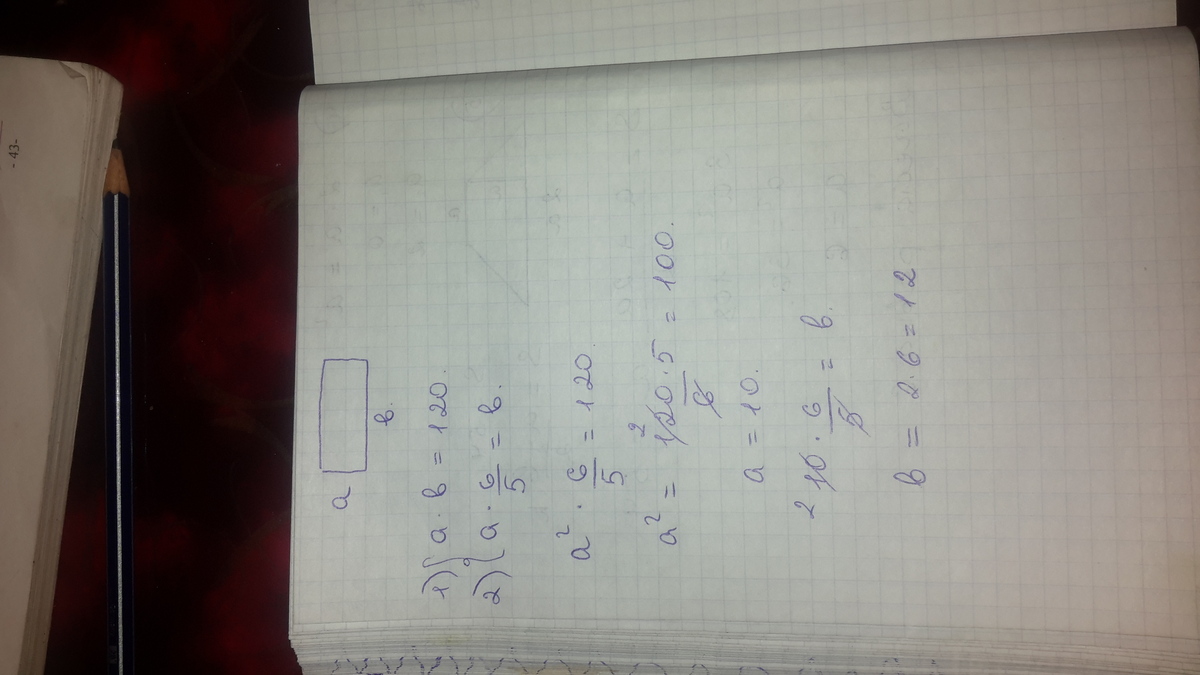 - 43-
a
в.
1) { a · в = 120.
2) { a · 6/5 = в.
a² · 6/5 = 120.
a² = 120 · 5 / 6 = 100.
a = 10.
2 10 · 6/5 = в.
в = 2 · 6 = 12